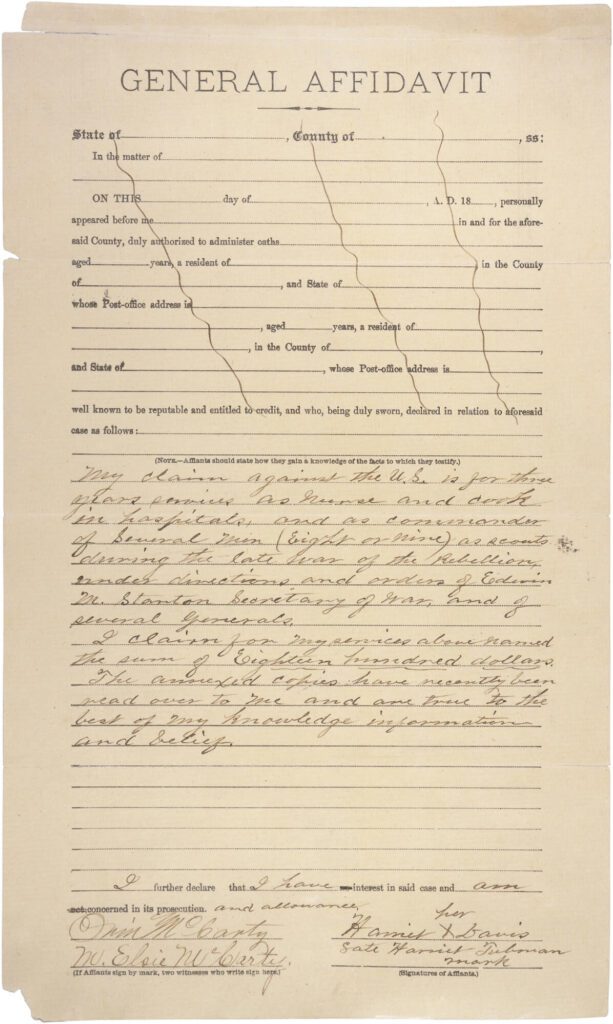 GENERAL AFFIDAVIT
State of , County of , ss:
In the matter of
ON THIS day of , A. D. 18 , personally
appeared before me in and for the afore-
said County, duly authorized to administer oaths
aged years, a resident of in the County
of , and State of
whose Post-office address is
, aged years, a resident of
, in the County of ,
and State of , whose Post-office address is
well known to be reputable and entitled to credit, and who, being duly sworn, declared in relation to aforesaid
case as follows:
(NOTE.—Affiants should state how they gain a knowledge of the facts to which they testify.)
My claim against the U.S. is for three
years services as nurse and cook
in hospitals, and as commander
of Several men (Eight or Nine) as scouts
during the late war of the Rebellion,
under directions and orders of Edwin
M. Stanton Secretary of War, and of
several Generals.
I claim for my services above named
the sum of Eighteen hundred dollars.
The annexed copies have recently been
read over to me and are true to the
best of my knowledge information
and belief.
I further declare that I have interest in said case and am
not concerned in its prosecution. and allowance
Orin McCarty
her
Harriet X Davis
M. Elsie McCarty.
late Harriet Tubman
mark
(If Affiants sign by mark, two witnesses who write sign here.)
(Signatures of Affiants.)